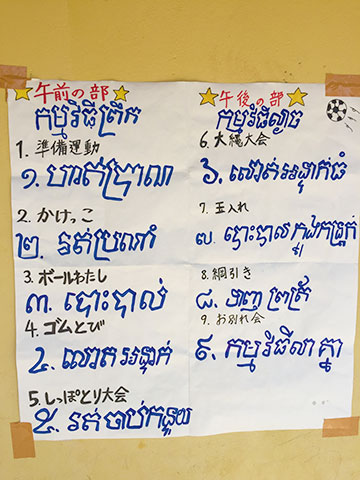 午前の部
កម្មវិធីព្រឹក
1. 準備運動
១. ហាត់ប្រាណ
2. かけっこ
២. រត់ប្រណាំ
3. ボールわたし
៣. បោះបាល់
4. ゴムとび
៤. លោតអង្ទាក់
5. しっぽとり大会
៥. រត់ចាប់កន្ទុយ
午後の部
កម្មវិធីល្ងាច
6. 大縄大会
៦. លោតអង្ទាក់ធំ
7. 玉入れ
៧. បោះបាលក្នុងកន្ត្រក
8. 綱引き
៨. ទាញព្រ័ត្រ
9. お別れ会
៩. កម្មវិធីលាគ្នា